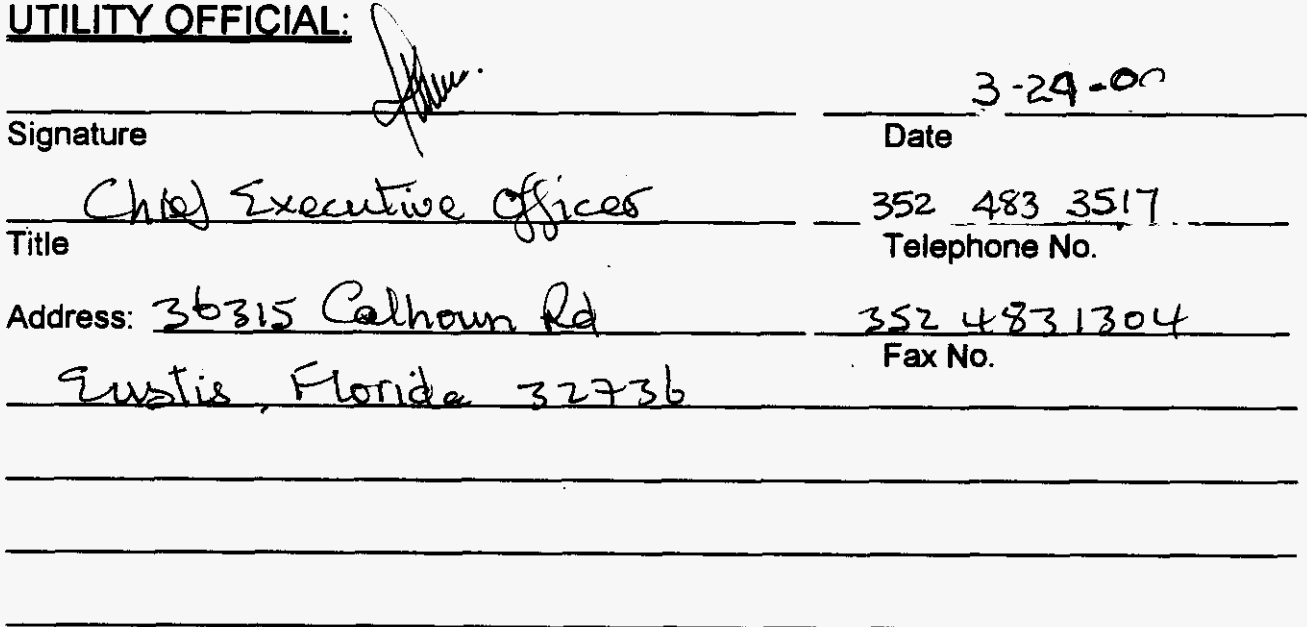 UTILITY OFFICIAL:
3-29-00
Signature Date
Chief Executive Officer 352 483 3517
Title Telephone No.
Address: 36315 Calhoun Rd 352 483 1304
Fax No.
Eustis, Florida 32736